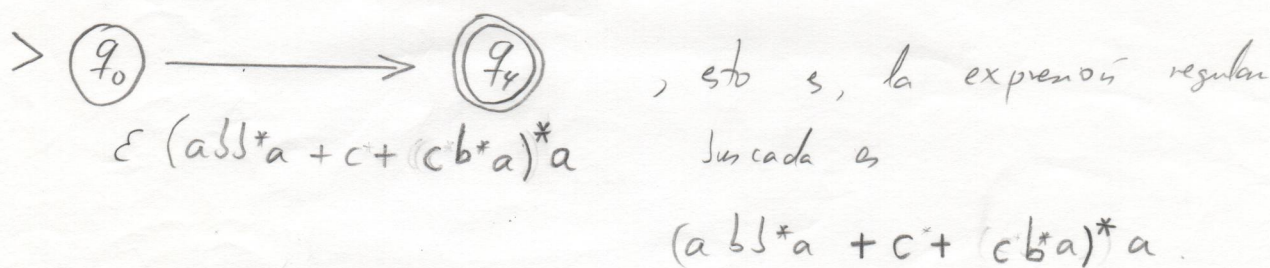 > q₀ → q₄ , esto es, la expresión regular
ε (abb*a + c + (cb*a)*a buscada es
(abb*a + c + cb*a)*a.